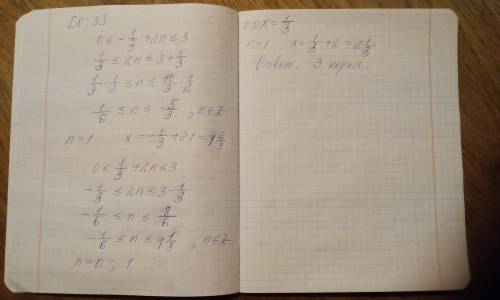 [0; 3]
0 ≤ -1/3 + 2n ≤ 3
1/3 ≤ 2n ≤ 3 + 1/3
1/3 · 1/2 ≤ n ≤ 10/3 · 1/2
1/6 ≤ n ≤ 5/3, n∈Z
n=1 x = -1/3 + 2·1 = 1 2/3
0 ≤ 1/3 + 2n ≤ 3
-1/3 ≤ 2n ≤ 3 - 1/3
-1/6 ≤ n ≤ 8/6
-1/6 ≤ n ≤ 1 1/3, n∈Z
n=0; 1
n=0 x = 1/3
n=1 x = 1/3 + 2 = 2 1/3
Ответ. 3 корня.